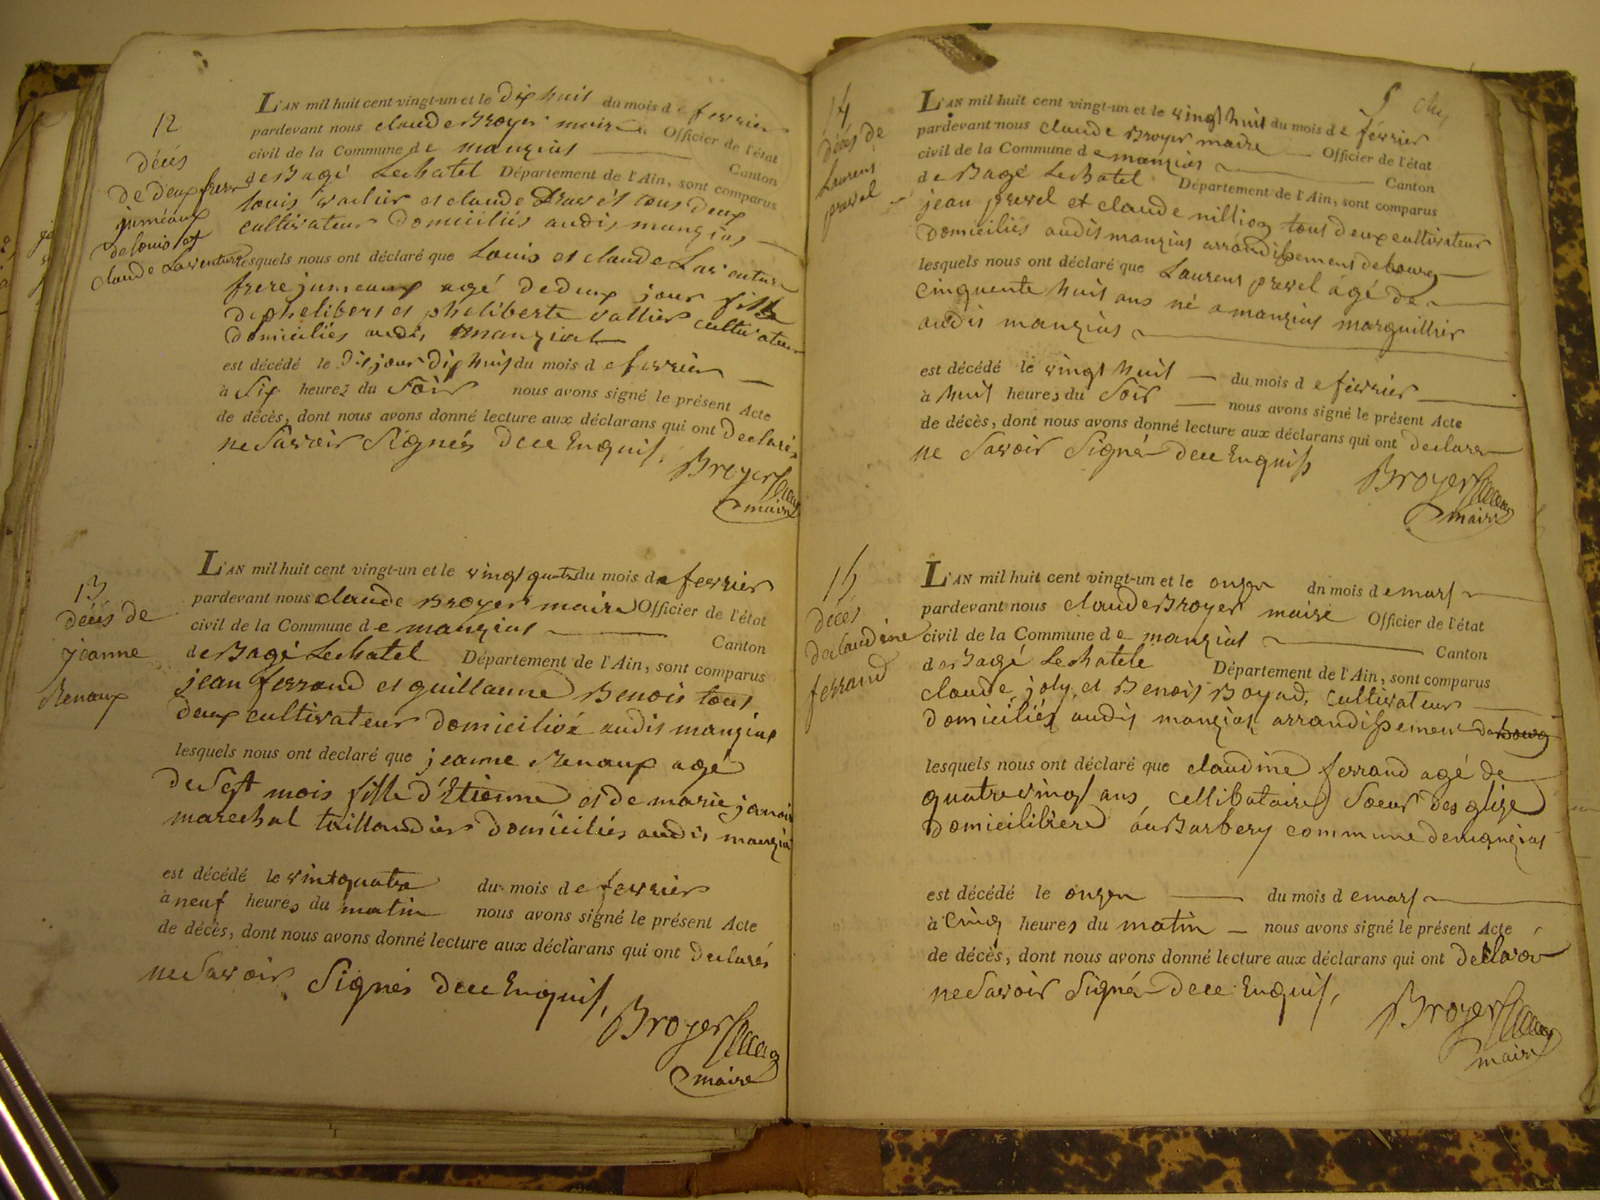 12
décés
de deux frere
juméaux
de louis et
claude Laventure
L'AN mil huit cent vingt-un et le dix huit du mois de fevrier
pardevant nous claude Broyer maire Officier de l'état
civil de la Commune de manziat Canton
de Bagé Lechatel Département de l'Ain, sont comparus
louis et claude tous deux
cultivateur domiciliés audis manziat
lesquels nous ont déclaré que Louis et claude Laventure
frere jumeaux agé de deux jour fils
de philibert et philiberte vallier cultivateur
domiciliés audis manziat
est décédé le dis jour dix huit du mois de fevrier
à six heures du soir nous avons signé le présent Acte
de décès, dont nous avons donné lecture aux déclarans qui ont declarés
ne savoir signés dece Enquis.
Broyer
maire
13
décés de
jeanne
Renaux
L'AN mil huit cent vingt-un et le vingt quatre du mois de fevrier
pardevant nous claude Broyer maire Officier de l'état
civil de la Commune de manziat Canton
de Bagé Lechatel Département de l'Ain, sont comparus
jean ferrand et guillaume Benoit tous
deux cultivateur domicilié audis manziat
lesquels nous ont declaré que jeanne Renaux agé
de sept mois fille d'Etienne et de marie
marechal taillandier domiciliés audis manziat
est décédé le vintquatre du mois de fevrier
à neuf heures du matin nous avons signé le présent Acte
de décès, dont nous avons donné lecture aux déclarans qui ont declarés
ne savoir signés dece Enquis,
Broyer
maire
5
14
décés de
Laurent
prevel
L'AN mil huit cent vingt-un et le vingt huit du mois de février
pardevant nous claude Broyer maire Officier de l'état
civil de la Commune de manziat Canton
de Bagé Lechatel Département de l'Ain, sont comparus
jean prevel et claude nillion tous deux cultivateur
domiciliés audis manziat arrondissement de bourg
lesquels nous ont déclaré que Laurent prevel agé de
cinquente huit ans né a manziat marguillier
audis manziat
est décédé le vingt huit du mois de fievrier
à huit heures du soir nous avons signé le présent Acte
de décès, dont nous avons donné lecture aux déclarans qui ont declare
ne savoir signé dece Enquis
Broyer
maire
15
décés
de claudine
ferrand
L'AN mil huit cent vingt-un et le onze du mois de mars
pardevant nous claude Broyer maire Officier de l'état
civil de la Commune de manziat Canton
de Bagé Lechatele Département de l'Ain, sont comparus
claude joly et Benoit Boyad, cultivateur
domiciliés audis manziat arrandissement de bourg
lesquels nous ont déclaré que claudine ferrand agé de
quatrevingt ans cellibataire soeur des glize
domicilière au Barbery commune de manziat
est décédé le onze du mois de mars
à cinq heures du matin nous avons signé le présent Acte
de décès, dont nous avons donné lecture aux déclarans qui ont declaré
ne savoir signé dece Enquis,
Broyer
maire